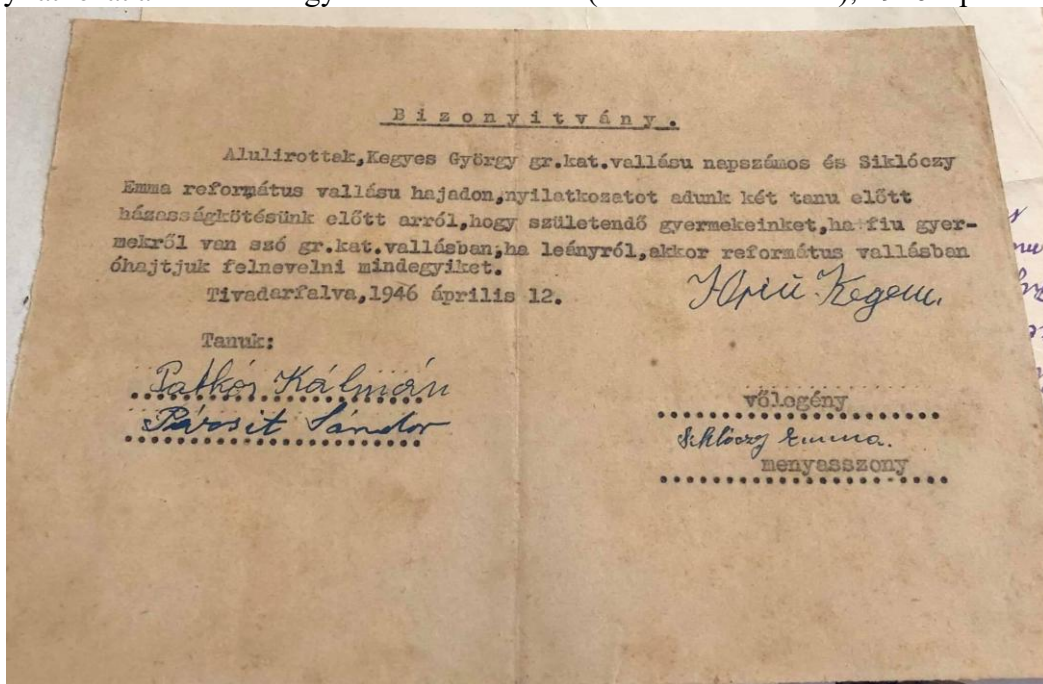 Bizonyitvány.
Alulirottak,Kegyes György gr.kat.vallásu napszámos és Siklóczy
Emma református vallásu hajadon,nyilatkozatot adunk két tanu előtt
házasságkötésünk előtt arról,hogy születendő gyermekeinket,ha fiu gyer-
mekről van szó gr.kat.vallásban,ha leányról,akkor református vallásban
óhajtjuk felnevelni mindegyiket.
Tivadarfalva,1946 április 12.
Tanuk:
Patkós Kálmán
Sándor
vőlogény
Siklóczy Emma.
menyasszony